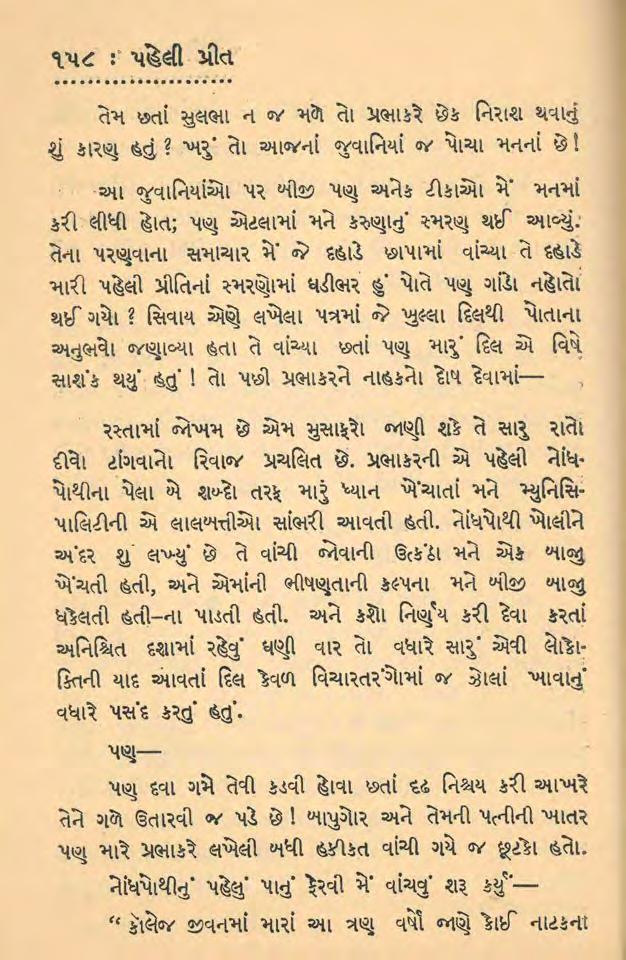 ૧૫૮ : પહેલી પ્રીત
તેમ છતાં સુલભા ન જ મળે તો પ્રભાકરે છેક નિરાશ થવાનું
શું કારણ હતું ? ખરું તો આજનાં જુવાનિયાં જ પોચા મનનાં છે !
આ જુવાનિયાંઓ પર બીજી પણ અનેક ટીકાઓ મેં મનમાં
કરી લીધી હોત; પણ એટલામાં મને કરુણાનું સ્મરણ થઈ આવ્યું.
તેના પરણવાના સમાચાર મેં જે દહાડે છાપામાં વાંચ્યા તે દહાડે
મારી પહેલી પ્રીતિનાં સ્મરણોમાં ઘડીભર હું પોતે પણ ગાંડો નહોતો
થઈ ગયો ? સિવાય એણે લખેલા પત્રમાં જે ખુલ્લા દિલથી પોતાના
અનુભવો જણાવ્યા હતા તે વાંચ્યા છતાં પણ મારું દિલ એ વિષે
સાશંક થયું હતું ! તો પછી પ્રભાકરને નાહકનો દોષ દેવામાં—
રસ્તામાં જોખમ છે એમ મુસાફરો જાણી શકે તે સારુ રાતો
દીવો ટાંગવાનો રિવાજ પ્રચલિત છે. પ્રભાકરની એ પહેલી નોંધ-
પોથીના પેલા બે શબ્દો તરફ મારું ધ્યાન ખેંચાતાં મને મ્યુનિસિ-
પાલિટીની એ લાલબત્તીઓ સાંભરી આવતી હતી. નોંધપોથી ખોલીને
અંદર શું લખ્યું છે તે વાંચી જોવાની ઉત્કંઠા મને એક બાજુ
ખેંચતી હતી, અને એમાંની ભીષણતાની કલ્પના મને બીજી બાજુ
ધકેલતી હતી–ના પાડતી હતી. અને કશો નિર્ણય કરી દેવા કરતાં
અનિશ્ચિત દશામાં રહેવું ઘણી વાર તો વધારે સારું એવી લોકો-
ક્તિની યાદ આવતાં દિલ કેવળ વિચારતરંગોમાં જ ઝોલાં ખાવાનું
વધારે પસંદ કરતું હતું.
પણ—
પણ દવા ગમે તેવી કડવી હોવા છતાં દૃઢ નિશ્ચય કરી આખરે
તેને ગળે ઉતારવી જ પડે છે ! બાપુગોર અને તેમની પત્નીની ખાતર
પણ મારે પ્રભાકરે લખેલી બધી હકીકત વાંચી ગયે જ છૂટકો હતો.
નોંધપોથીનું પહેલું પાનું ફેરવી મેં વાંચવું શરૂ કર્યું—
“ કૉલેજ જીવનમાં મારાં આ ત્રણ વર્ષો જાણે કોઈ નાટકના